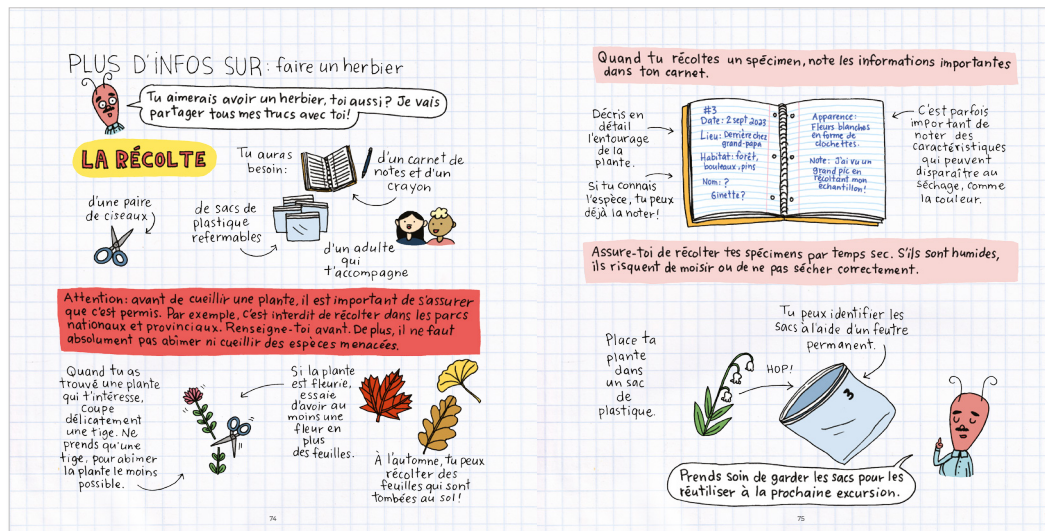 PLUS D'INFOS SUR : faire un herbier
Tu aimerais avoir un herbier, toi aussi? Je vais
partager tous mes trucs avec toi!
LA RÉCOLTE
Tu auras
besoin:
d'un carnet de
notes et d'un
crayon
d'une paire
de ciseaux
de sacs de
plastique
refermables
d'un adulte
qui
t'accompagne
Attention: avant de cueillir une plante, il est important de s'assurer
que c'est permis. Par exemple, c'est interdit de récolter dans les parcs
nationaux et provinciaux. Renseigne-toi avant. De plus, il ne faut
absolument pas abimer ni cueillir des espèces menacées.
Quand tu as
trouvé une plante
qui t'intéresse,
coupe
délicatement
une tige. Ne
prends qu'une
tige, pour abimer
la plante le moins
possible.
Si la plante
est fleurie,
essaie
d'avoir au
moins une
fleur en
plus
des feuilles.
À l'automne, tu peux
récolter des
feuilles qui sont
tombées au sol!
74
Quand tu récoltes un spécimen, note les informations importantes
dans ton carnet.
Décris en
détail
l'entourage
de la
plante.
Si tu connais
l'espèce, tu peux
déjà la noter!
#3
Date: 2 sept 2023
Lieu: Derrière chez
grand-papa
Habitat: forêt,
bouleaux, pins
Nom: ?
Ginette?
Apparence:
Fleurs blanches
en forme de
clochettes.
Note: J'ai vu un
grand pic en
récoltant mon
échantillon!
C'est parfois
important de
noter des
caractéristiques
qui peuvent
disparaître au
séchage, comme
la couleur.
Assure-toi de récolter tes spécimens par temps sec. S'ils sont humides,
ils risquent de moisir ou de ne pas sécher correctement.
Place ta
plante
dans
un sac
de
plastique.
HOP!
Tu peux identifier les
sacs à l'aide d'un feutre
permanent.
3
Prends soin de garder les sacs pour les
réutiliser à la prochaine excursion.
75